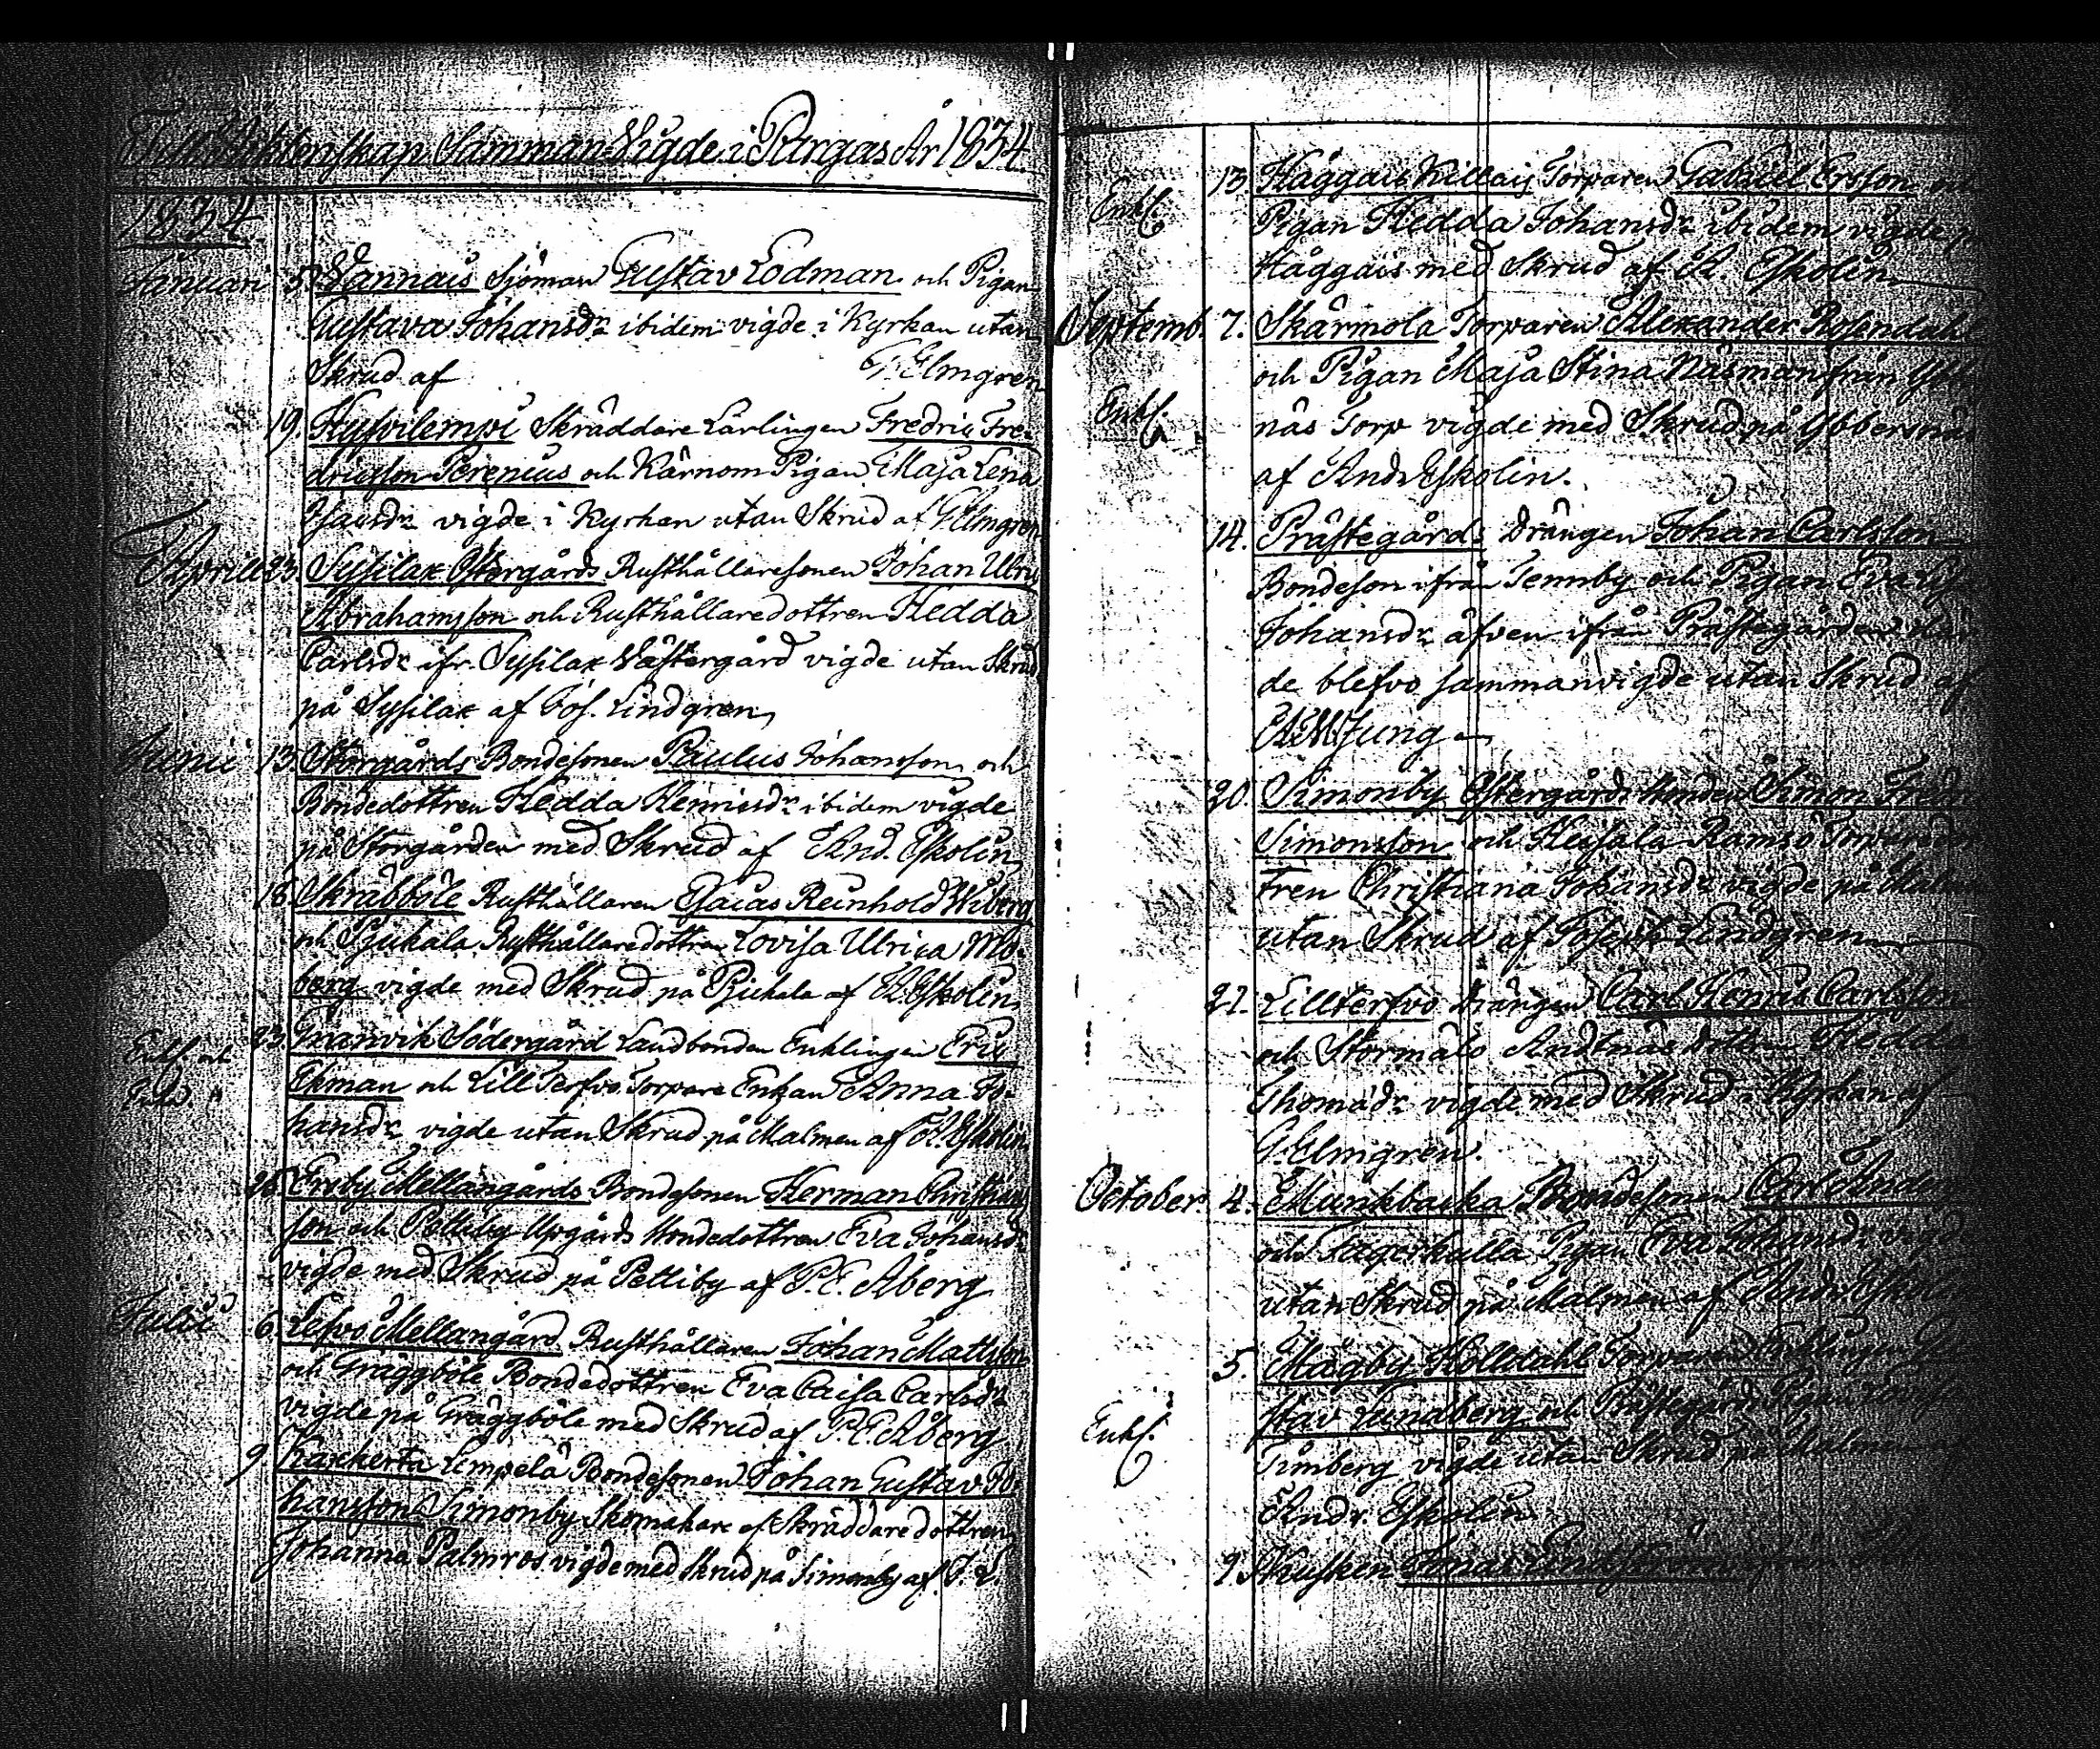 Till Äktenskap Samman Vigde i Pargas År 1834
1834.
Januari 5. Vannais Sjöman Gustav Lodman och Pigan
Gustava Johansdr ibidem vigde i Kyrkan utan
Skrud af G. Elmgren
19. Hyfvilempi Skräddare Lärlingen Fredric Fre-
dricsson Serenius och Kärnom Pigan Maja Lena
Isacsdr vigde i Kyrkan utan Skrud af G. Elmgren
Aprill 23. Sysilax Östergårds Rusthållaresonen Johan Ulric
Abrahamsson och Rusthållaredottren Hedda
Carlsdr ifr. Sysilax Västergård vigde utan Skrud
på Sysilax af Jos. Lindgren
Junii 13. Storgårds Bondesonen Paulus Johansson och
Bondedottren Hedda Henricsdr ibidem vigde
på Storgården med Skrud af And. Eskolin
18. Skräbböle Rusthållaren Esaias Reinhold Wiberg
och Pjukala Rusthållaredottren Lovisa Ulrica Mo-
berg vigde med Skrud på Pjukala af A. Eskolin
Enkl. och 23. Granvik Södergård Landbonden Enklingen Eric
Ekman och Lill Terfvo Torpare Enkan Anna Jo-
hansdr vigde utan Skrud på Malmen af A. Eskolin
26. Ersby Mellangårds Bondesonen Herman Christians
son och Pettiby Uppgårds Bondedottren Eva Johansdr
vigde med Skrud på Pettiby af P. E. Åberg
Julii 6. Lefvo Mellangård Rusthållaren Johan Mattsson
och Gräggböle Bondedottren Eva Caisa Carlsdr
vigde på Gräggböle med Skrud af P. E. Åberg
9. Kaxkerta Lempelä Bondesonen Johan Gustav Jo-
hansson Simonby Skomakare af Skräddaredottren
Johanna Palmros vigde med Skrud på Simonby af J. L.
13. Håggais Killais Torparen Gabriel Ersson och
Enkl. Pigan Hedda Johansdr ibidem vigde på
Håggais med Skrud af A. Eskolin
Septemb. 7. Skärmola Torparen Alexander Rosendahl
och Pigan Maja Stina Näsman från Ybbers
Enkl. näs Torp vigde med Skrud på Ybbersnäs
af Andr Eskolin.
14. Prästegårds Drängen Johan Carlsson
Bondeson ifrån Tennby och Pigan Eva Lis
Johansdr äfven ifrån Prästegården
de blefvo sammanvigde utan Skrud af
Ljung
20. Simonby Östergårds Simon Fredr
Simonsson och Heisala Ramsö Torparedot
tren Christiana Johansdr vigde på Malm
utan Skrud af Joseph Lindgren
21. Lillterfvo Drängen Carl Henric Carlsson
och Stormälö Andtnäs dottren Hedda
Thomasdr vigde med Skrud i Kyrkan af
G. Elmgren.
October 4. Munkbacka Bondesonen Carl Anders
och Fagerkulla Pigan Eva Johansdr vigd
utan Skrud på Malmen af Andr. Eskolin
5. Mågby Kolldahl Torparen Enklingen Gu
stav Lundberg och Prästegårds Pigan
Enkl. Timberg vigde utan Skrud på Malmen
Andr. Eskolin
9. Kusken Jonas Lindström